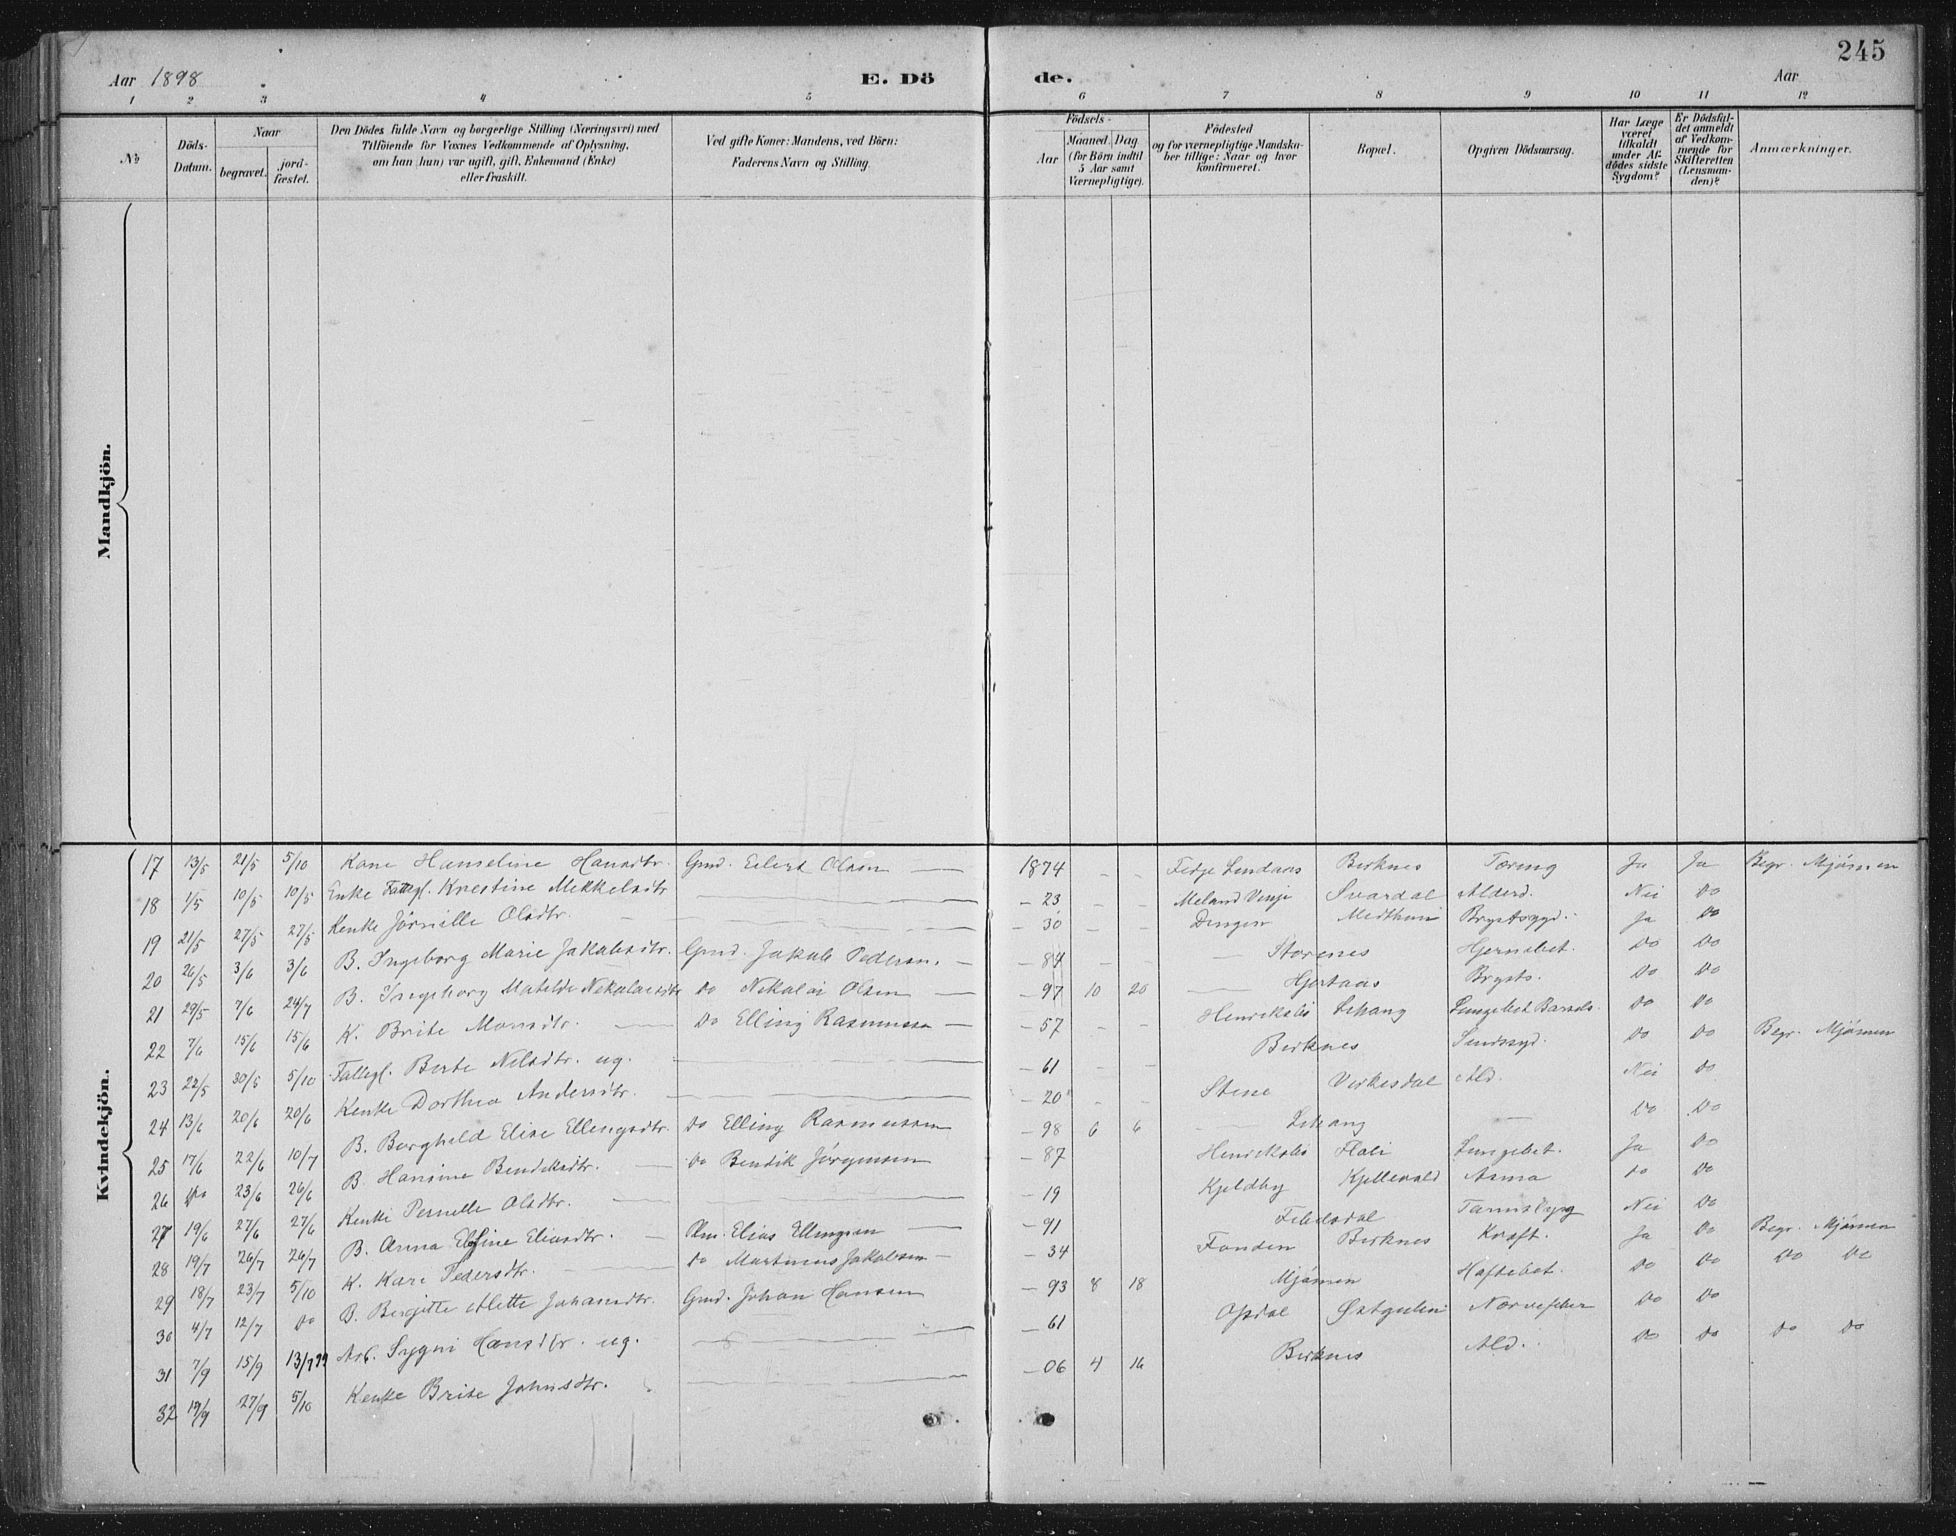 245
Aar 1898 E. Dö de. Aar
1 2 3 4 5 6 7 8 9 10 11 12
No
Döds-Datum.
Naar
begravet.
jord-fæstet.
Den Dödes fulde Navn og borgerlige Stilling (Næringsvei) med
Tilföiende for Voxnes Vedkommende af Oplysning,
om han (hun) var ugift, gift, Enkemand (Enke)
eller fraskilt.
Ved gifte Koner: Mandens, ved Börn:
Faderens Navn og Stilling.
Födsels-
Aar
Maaned. Dag
(for Börn indtil
5 Aar samt
Værnepligtige).
Födested
og for værnepligtige Mandska-
ber tillige: Naar og hvor
konfirmeret.
Bopæl.
Opgiven Dödsaarsag.
Har Læge
været
tilkaldt
under Af-
dödes sidste
Sygdom?
Er Dödsfal-
det anmeldt
af Vedkom-
mende for
Skifteretten
(Lensman-
den)?
Anmærkninger.
Mandkjön.
Kvindekjön.
17 13/5 21/5 5/10 Kone Hanseline Hansdtr. Gmd. Eilert Olsen — 1874 - - Fedje Lindaas Birknes Tæring Ja Ja Begr. Mjömen
18 1/5 10/5 10/5 Enke Fattigl. Kristine Mikkelsdtr — - 23 - - Meland Vinje Svardal Alderd. Nei Do
19 21/5 27/5 27/5 Kenke Jörnille Olsdtr. — - 30 - - Dingen Ja Do
20 26/5 3/6 3/6 B. Ingeborg Marie Jakobsdtr. Gmd. Jakob Pedersen. - 84 - — Storenes Hjernebet. Do Do
21 29/5 7/6 24/7 B. Ingeborg Matelde Nekolaisdtr Do Nikolai Olsen — - 97 10 20 — Hjertaas Brysts. Do Do
22 7/6 15/6 15/6 K. Brite Monsdtr. — Do Elling Rasmussen — - 57 - - Lihang Lungebet. Do Do
23 22/5 30/5 5/10 Fattigl. Berte Nilsdtr. ug. — - 61 - - Birknes Do Do Begr. Mjömen
24 13/6 20/6 20/6 Kenke Dorthea Andersdtr. — - 20 - - Stene Virkesdal Ald. Nei Do
25 17/6 22/6 10/7 B. Borghild Elise Ellingsdtr. Do Elling Rasmussen - 98 6 6 — Lihang — Do Do
26 Do 23/6 26/6 B. Hansine Bendiksdtr. — Do Bendik Jørgensen - 87 Lungebet. Ja Do
27 19/6 27/6 27/6 Kenke Pernelle Olsdtr. — - 19 Kjeldby Kjellevold Asma Do Do
28 19/7 26/7 26/7 B. Anna Elisine Eliasdtr. — Elias Ellingsen — - 91 Nei Do
29 18/7 23/7 5/10 K. Kari Pedersdtr. — Do Martinus Jakobsen — - 34 Fonden Birknes Kræft. Ja Do Begr. Mjömen
30 4/7 12/7 Do B. Birgitte Alette Johansdtr. Gmd. Johan Hansen - 93 8 18 Mjömen Do Do Do Do
31 7/9 15/9 13/7 99 Sygni Hansdtr. ug. — - 61 Opdal Østgulen Nervefeber Do Do
32 19/9 27/9 5/10 Kenke Brite Johnsdtr. — - 06 4 16 Birknes Ald. Do Do Do Do